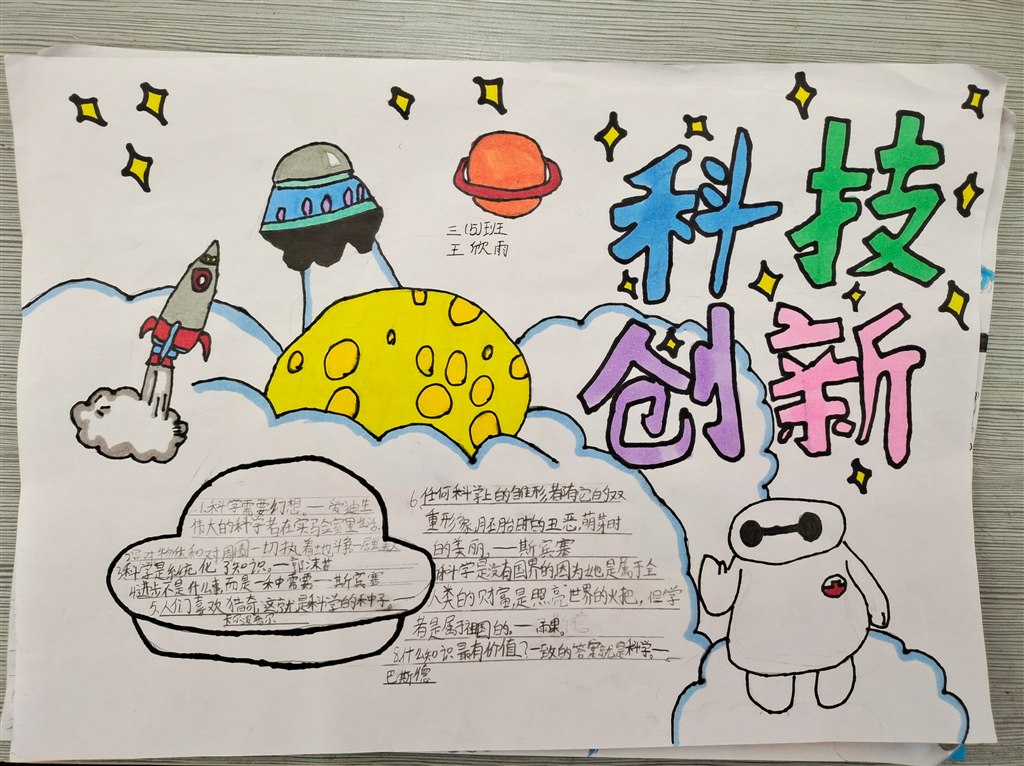 科技
创新
三(5)班
王欣雨
1.科学需要幻想.——爱迪生
伟大的科学者在实马会室里生活
科学是系统化了知识。——
进步不是什么事,而是一种需要——斯宾塞
5.人们喜欢猎奇,这就是科学的种子。——
6.任何科学上的雏形,都有它的双
重形象,月丕胎时的丑恶,萌芽时
的美丽。——斯宾塞
科学是没有国界的因为她是属于全
人类的财富,是照亮世界的火把,但学
者是属于祖国的。——
8.什么知识最有价值?一致的答案就是科学。—
巴斯德